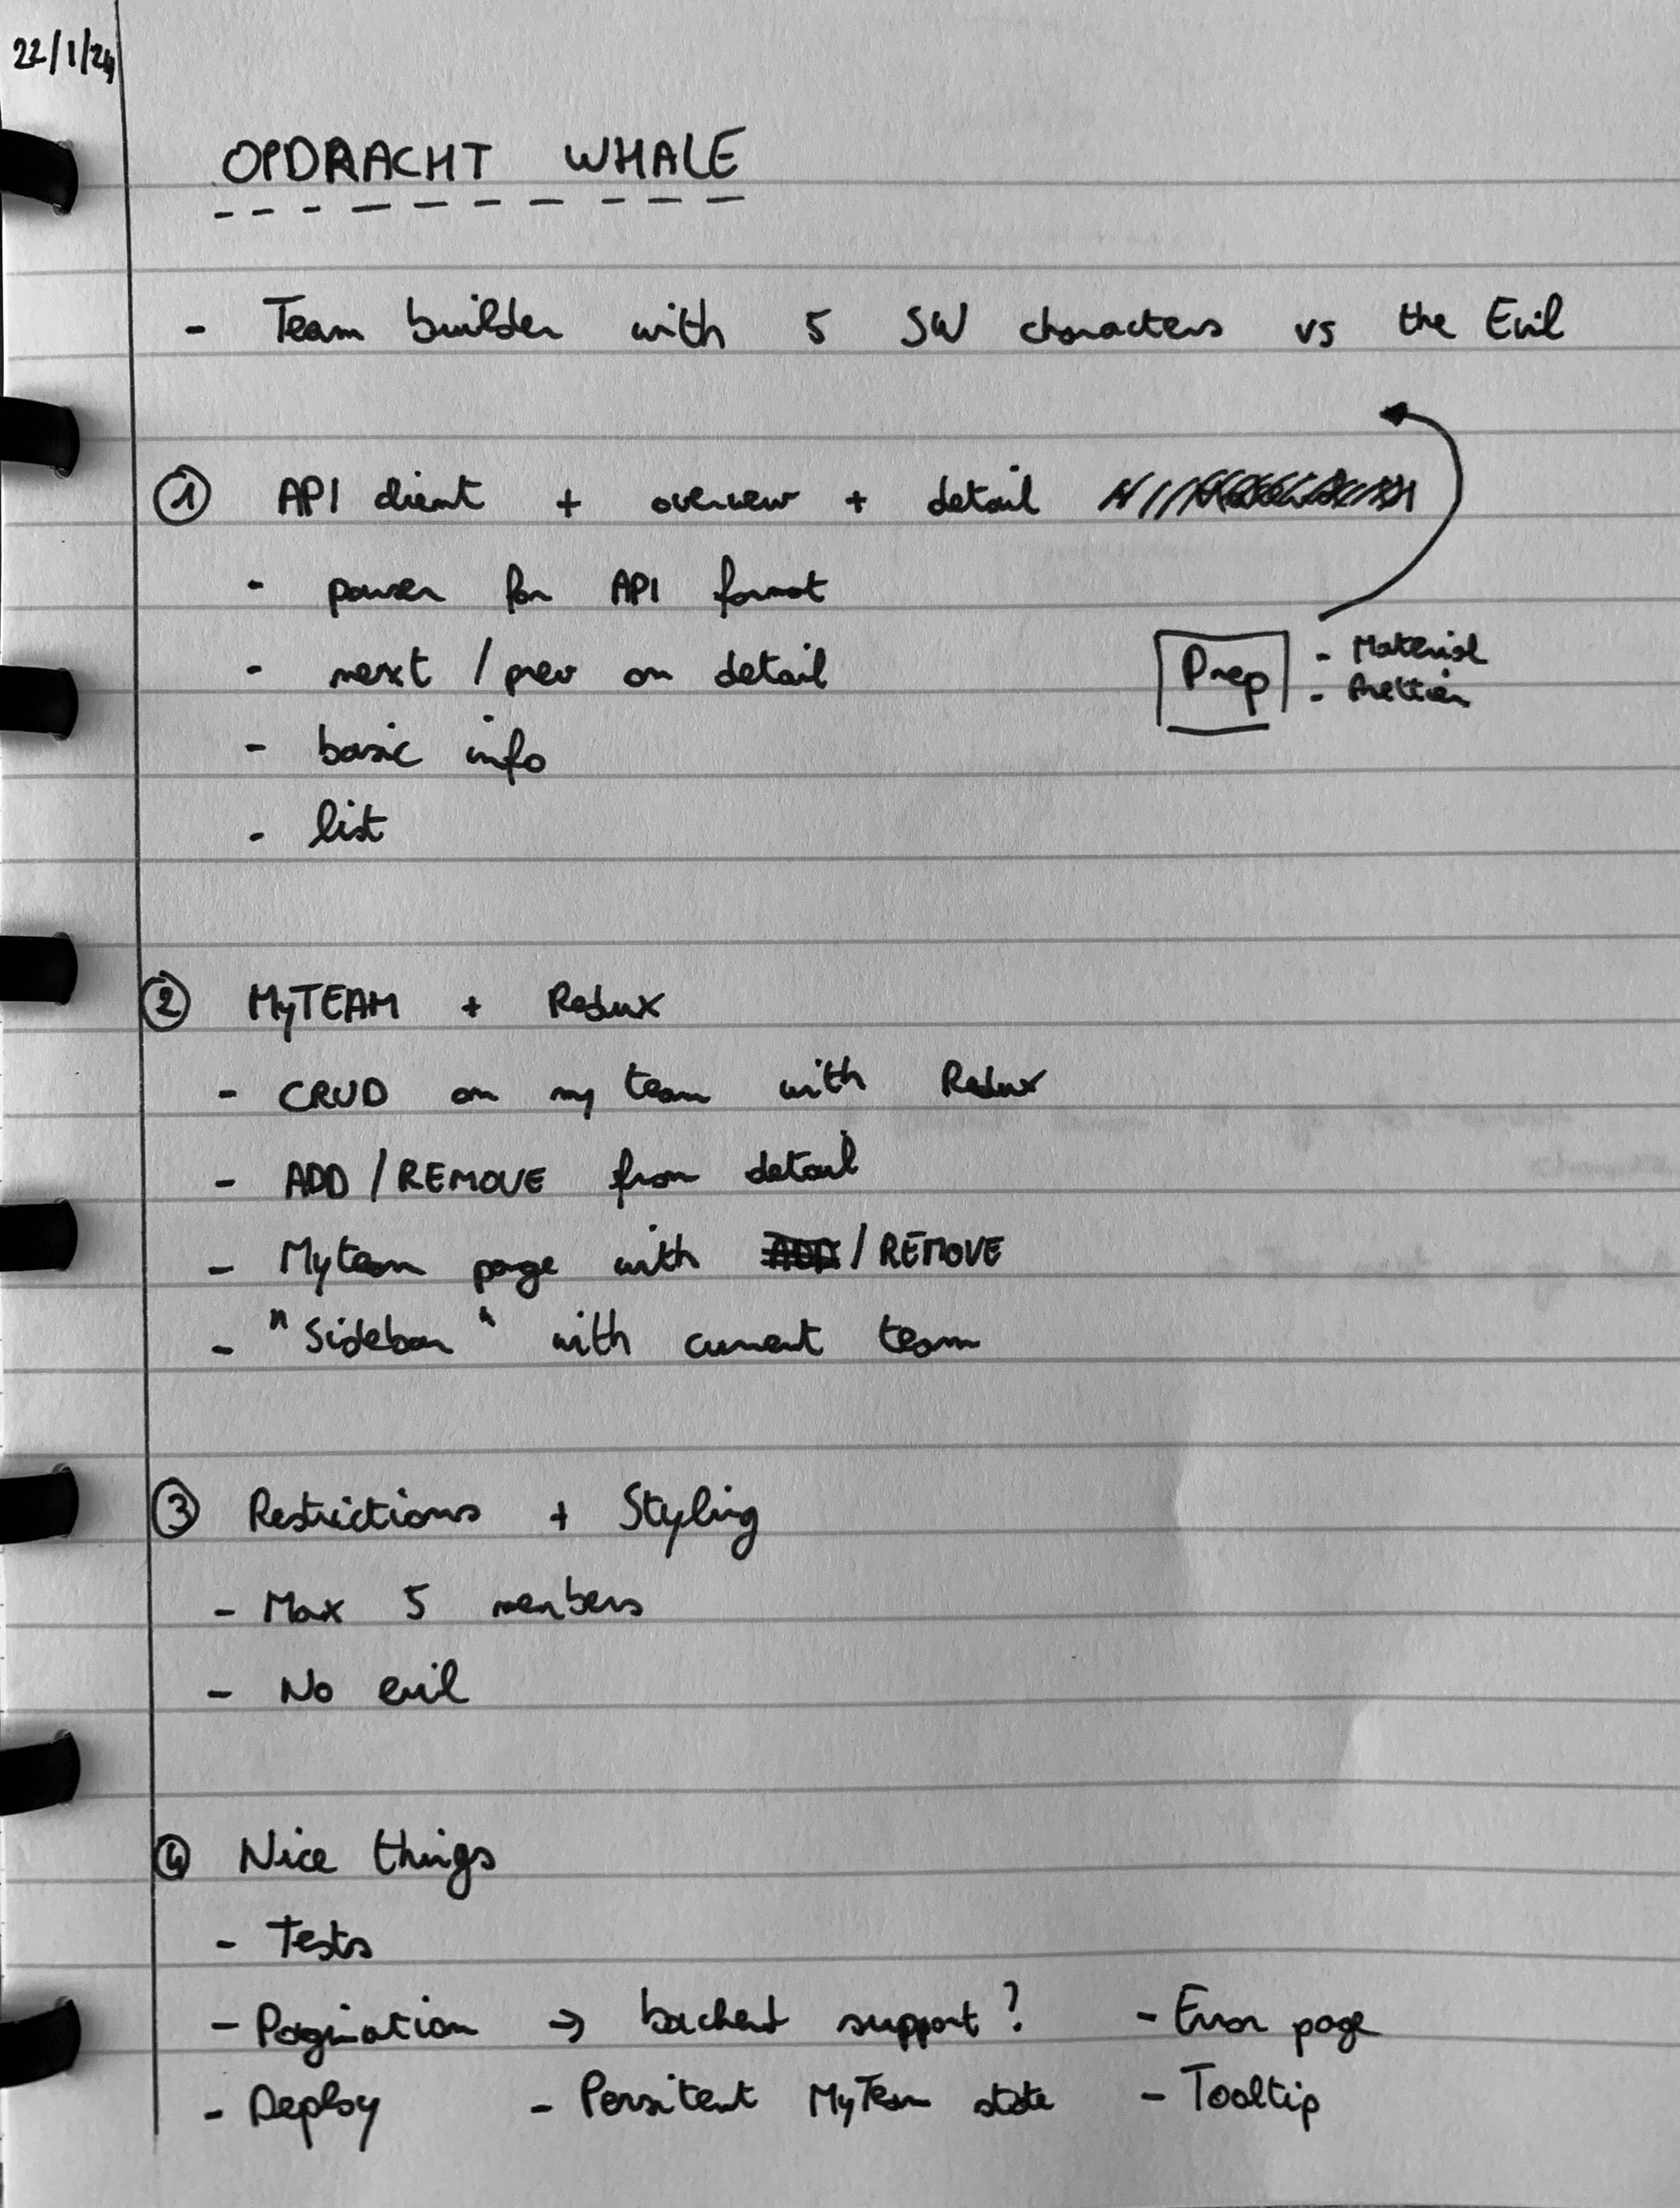 22/1/24
OPDRACHT WHALE
- Team builder with 5 SW characters vs the Evil
① API client + overview + detail
- parser for API format
- next / prev on detail
- basic info
- list
Prep
- Material
- Prettier
② MyTEAM + Redux
- CRUD on my team with Redux
- ADD / REMOVE from detail
- Myteam page with ADD / REMOVE
- "Sidebar" with current team
③ Restrictions + Styling
- Max 5 members
- No evil
④ Nice things
- Tests
- Pagination → backend support? - Error page
- Deploy - Persitent MyTeam state - Tooltip